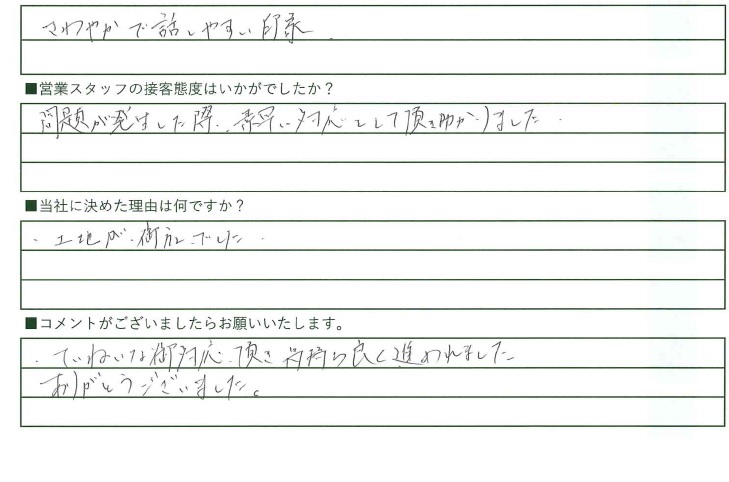 さわやかで話しやすい印象.
■営業スタッフの接客態度はいかがでしたか？
問題が発生した際、素早い対応をして頂き助かりました.
■当社に決めた理由は何ですか？
・土地が御社でした.
■コメントがございましたらお願いいたします。
・ていねいな御対応頂き気持ち良く進われました
ありがとうございました。